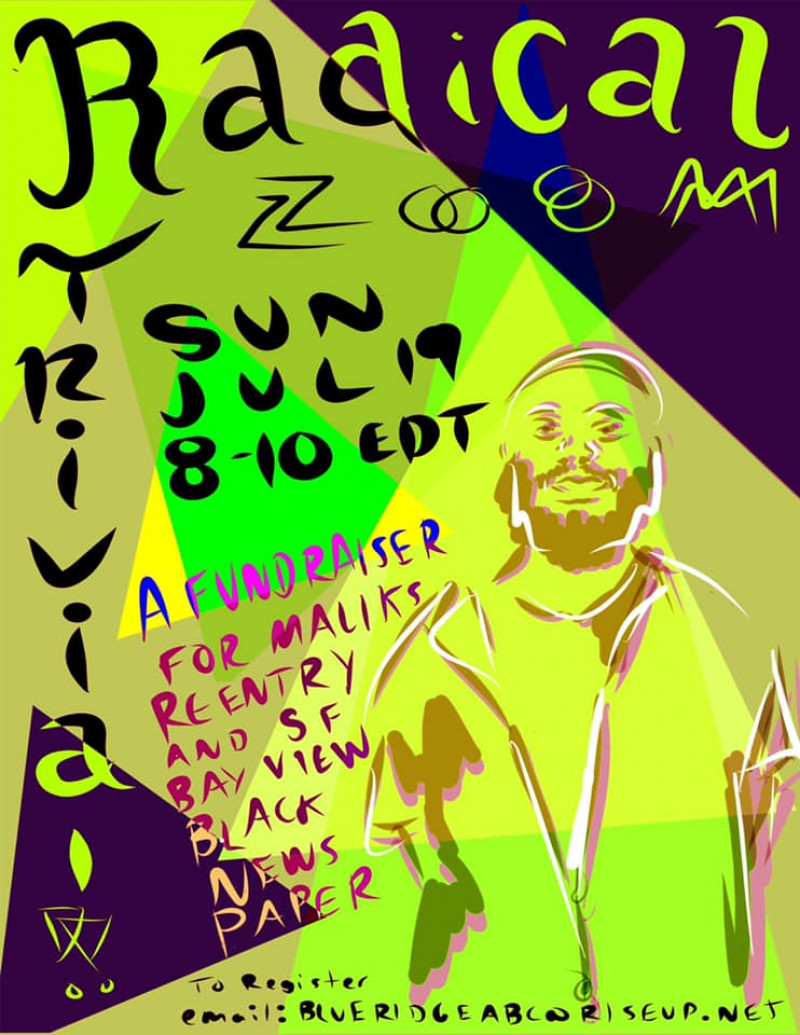 Radical
TRiVial
ZOOM
SUN
JUL 19
8-10 EDT
A FUNDRAISER
FOR MALIKS
REENTRY
AND SF
BAY VIEW
BLACK
NEWS
PAPER
To Register
email: BLUERIDGEABC@RISEUP.NET